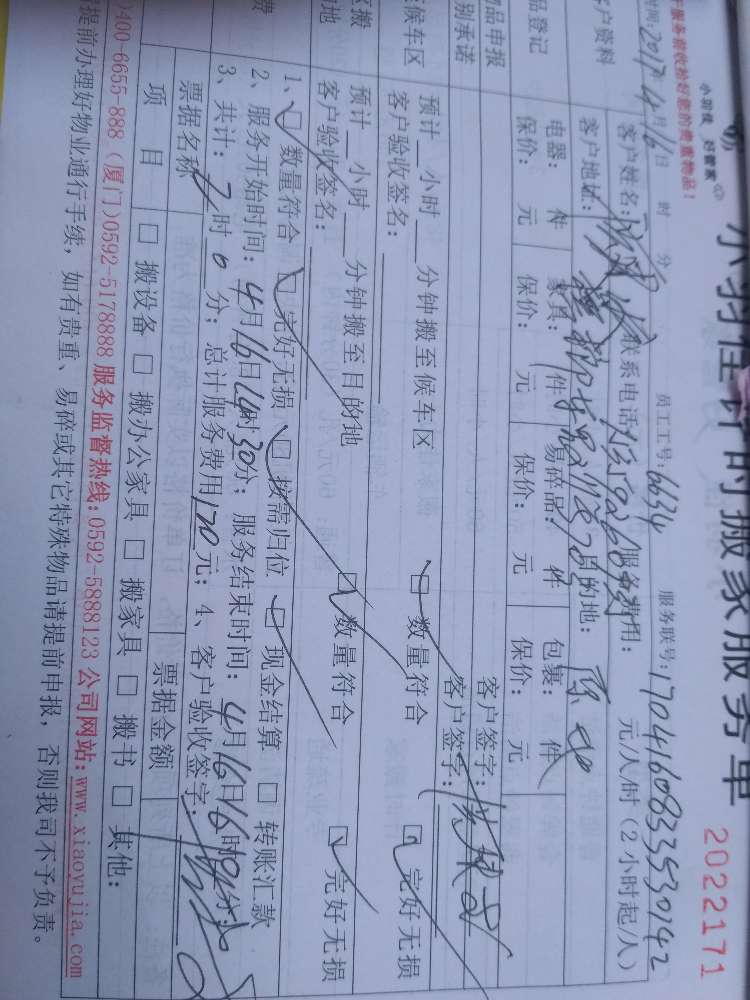 小羽佳计时搬家服务单
2022171
小羽佳，好管家
服务前收拾好您的贵重物品！
时间：2017年4月16日 时 分 员工工号：6634 服务联号：17041608335330142
客户资料 客户姓名： 联系电话 服务费用： 元/人/时（2小时起/人）
客户地址： 目的地：
品登记 电器： 件 家具： 件 易碎品： 件 包裹： 件
保价： 元 保价： 元 保价： 元 保价： 元
物品申报 客户签字：
别承诺 客户签字：
候车区 预计__小时__分钟搬至候车区 □数量符合 □完好无损
客户验收签名：
预计__小时__分钟搬至目的地 □数量符合 □完好无损
客户验收签名：
1、□数量符合 □完好无损 □按需归位 □现金结算 □转账汇款
2、服务开始时间：4月16日14时30分；服务结束时间：4月16日16时 分
3、共计：2时0分；总计服务费用170元；4、客户验收签字：
票据名称 票据金额
项目 □搬设备 □搬办公家具 □搬家具 □搬书 □其他：
)400-6655-888（厦门）0592-5178888服务监督热线：0592-5888123公司网站：www.xiaoyujia.com
提前办理好物业通行手续，如有贵重、易碎或其它特殊物品请提前申报，否则我司不予负责。